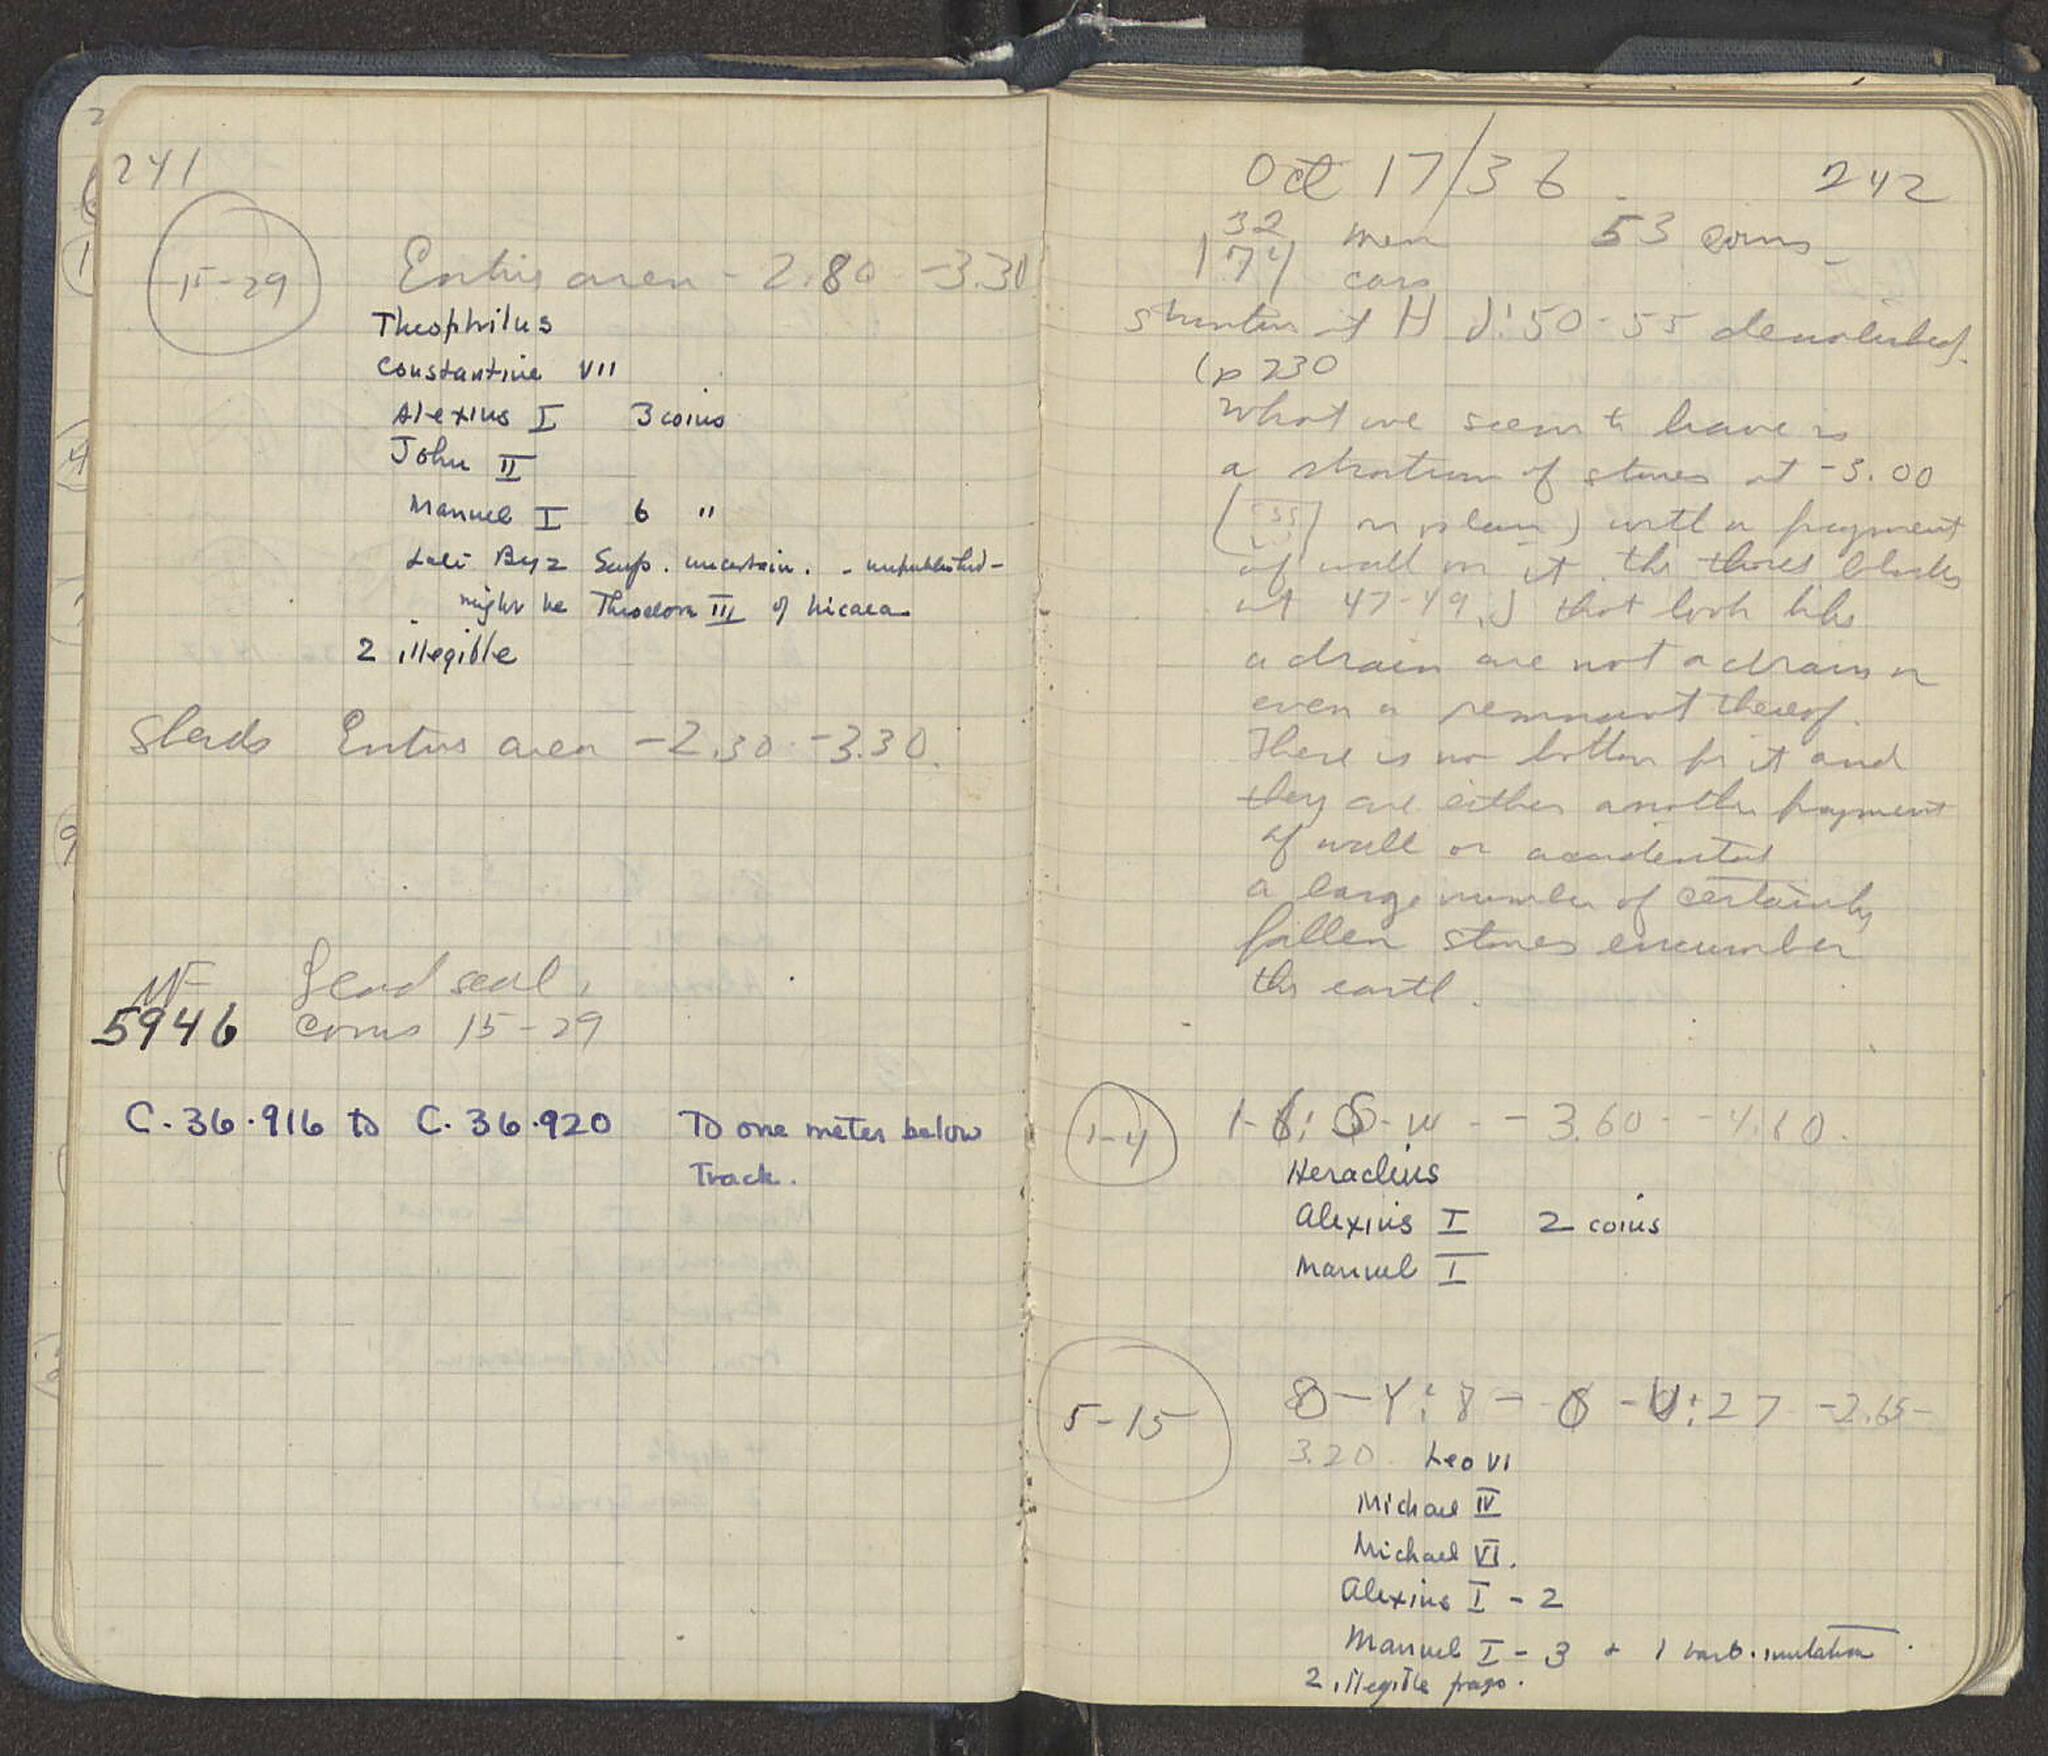 241
15-29
Entire area - 2.80 - -3.30
Theophilus
Constantine VII
Alexius I 3 coins
John II
Manuel I 6 "
Late Byz Emp. uncertain. - unpublished -
might be Theodore III of Nicaea
2 illegible
Sherds Entire area -2.30 - -3.30.
MF Lead seal,
5946 coins 15-29
C. 36.916 to C. 36.920 To one meter below
Track.
Oct 17/36 242
32 men 53 coins
174 cars
at H 50-55 demolished.
(p 230
What we seem to have is
a stratum of stones at -3.00
( on plan) with a fragment
of wall on it. The blocks
at 47-49 that look like
a drain are not a drain or
even a remnant thereof.
There is no bottom for it and
they are either another fragment
of wall or accidental
a large number of certainly
fallen stones encumber
the earth.
1-4
- -3.60 - -4.10.
Heraclius
Alexius I 2 coins
Manuel I
5-15
27 -2.65-
3.20. Leo VI
Michael IV
Michael VI.
Alexius I - 2
Manuel I - 3 + 1 barb. imitation.
2 illegible frags.